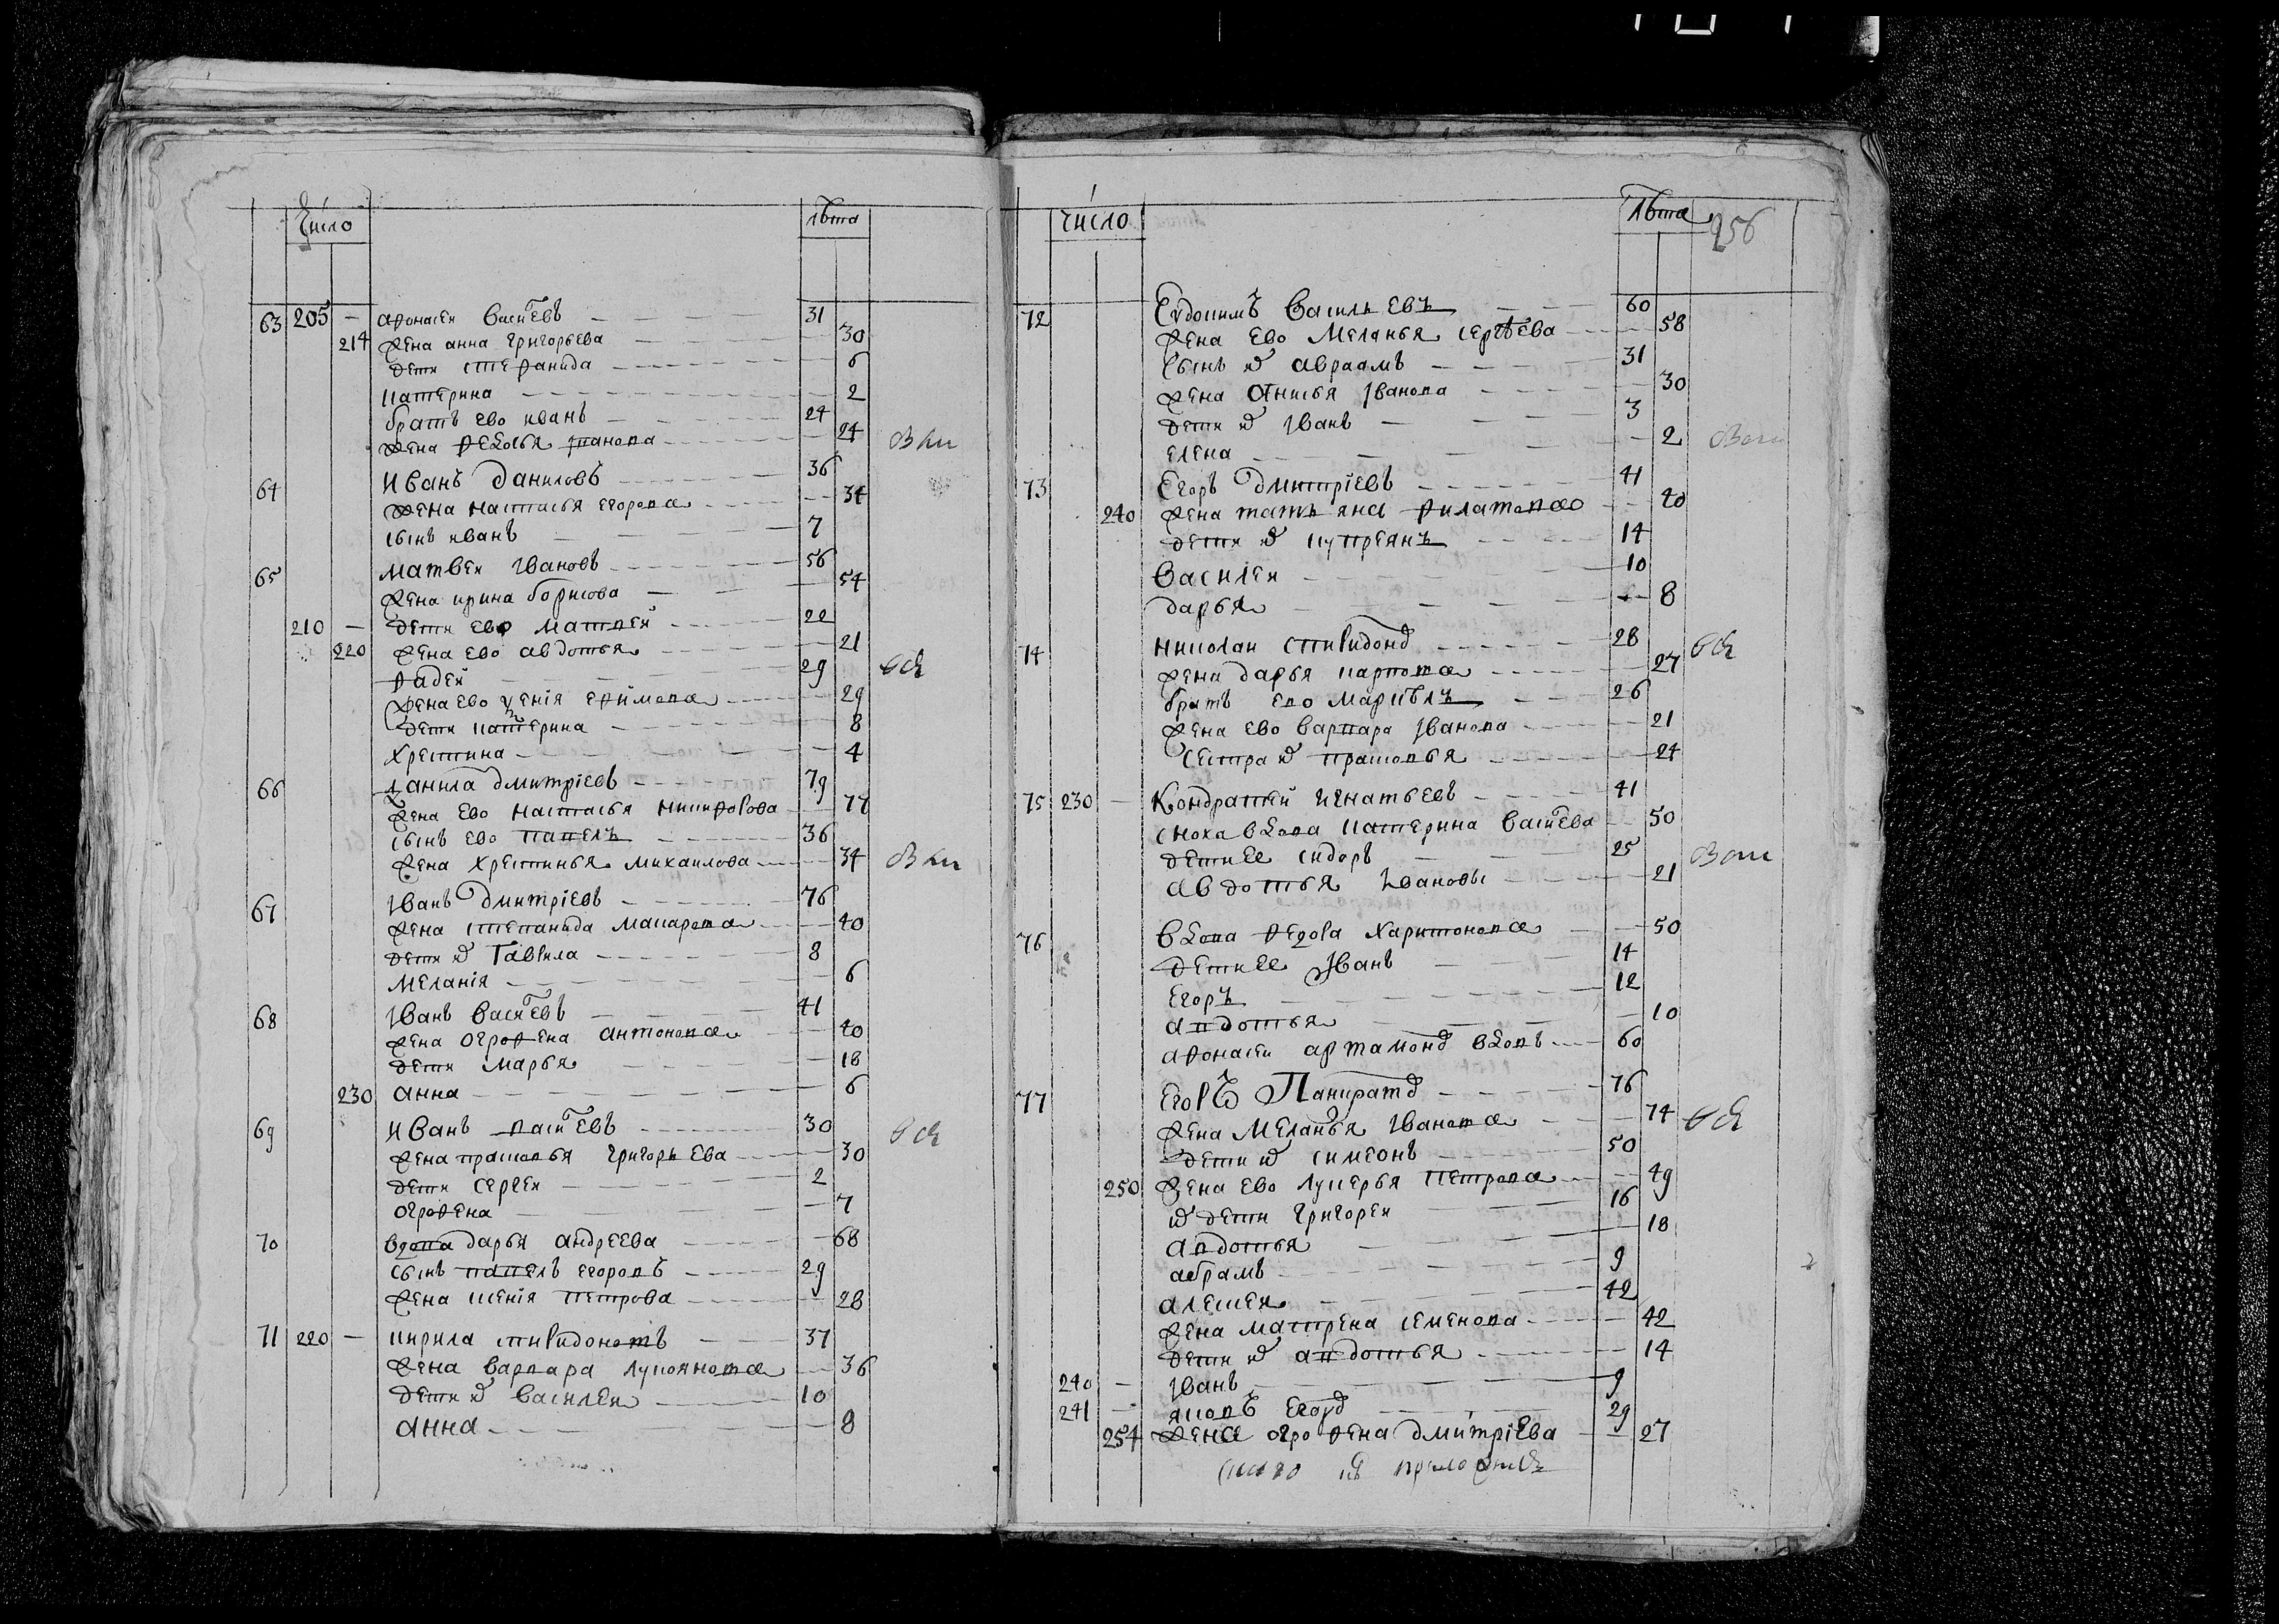 Число лѣта
63 205 — афонасеи васи҃евъ 31
214 жена анна григорьева 30
дети стефанида 6
катерина 2
братъ ево иванъ 24
жена федосья іванова 24
64 Иванъ даниловъ 36
жена настасья егорова 34
сынъ иванъ 7
65 матвеи Ивановъ 56
жена ирина борисова 54
210 — дети ево матвей 22
220 жена ево авдотья 21
фадей 29
жена ево ѯенія ефимова 29
дети катерина 8
христина 4
66 данила дмитріевъ 79
жена ево настасья никифорова 77
сынъ ево павелъ 36
жена христинья михаилова 34
67 Иванъ Дмитріевъ 76
жена степанида макарова 40
дети и҃ гаврила 8
меланія 6
68 Иванъ васи҃евъ 41
жена огрофена антонова 40
дети марья 18
230 анна 6
69 Иванъ васи҃евъ 30
жена прасковья григорьева 30
дети сергеи 2
огрофена 7
70 вдова дарья андреева 68
сынъ павелъ егоровъ 29
жена ксенія петрова 28
71 220 — кирила спиридоновъ 37
жена варвара лукоянова 36
дети и҃ василеи 10
анна 8
число лѣта 256
72 Евдокимъ Васильевъ 60
жена ево меланья сергѣева 58
сынъ и҃ авраамъ 31
жена анисья Іванова 30
дети и҃ Іванъ 3
елена 2
73 Егоръ Дмитріевъ 41
240 жена татьяна филатова 40
дети и҃ купреянъ 14
Василеи 10
дарья 8
74 николаи спиридоно҃ 28
жена дарья карпова 27
братъ ево маркѣлъ 26
жена ево варвара Іванова 21
сестра и҃ прасковья 24
75 230 — Кондратей игнатьевъ 41
сноха вдова катерина васи҃ева 50
дети ее сидоръ 25
авдотья Івановы 21
76 вдова федора харитонова 50
дети ее Іванъ 14
Егоръ 12
авдотья 10
афонасеи артамоно҃ вдовъ 60
77 Егоръ Панкрато҃ 76
жена Меланья Иванова 74
дети и҃ симеонъ 50
250 жена ево лукерья петрова 49
и҃ дети григореи 16
авдотья 18
абрамъ 9
алексеи 42
жена матрена семенова 42
дети и҃ авдотья 14
240 — Іванъ 9
241 — яковъ Егоро҃ 29
254 жена огрофена дмитріева 27